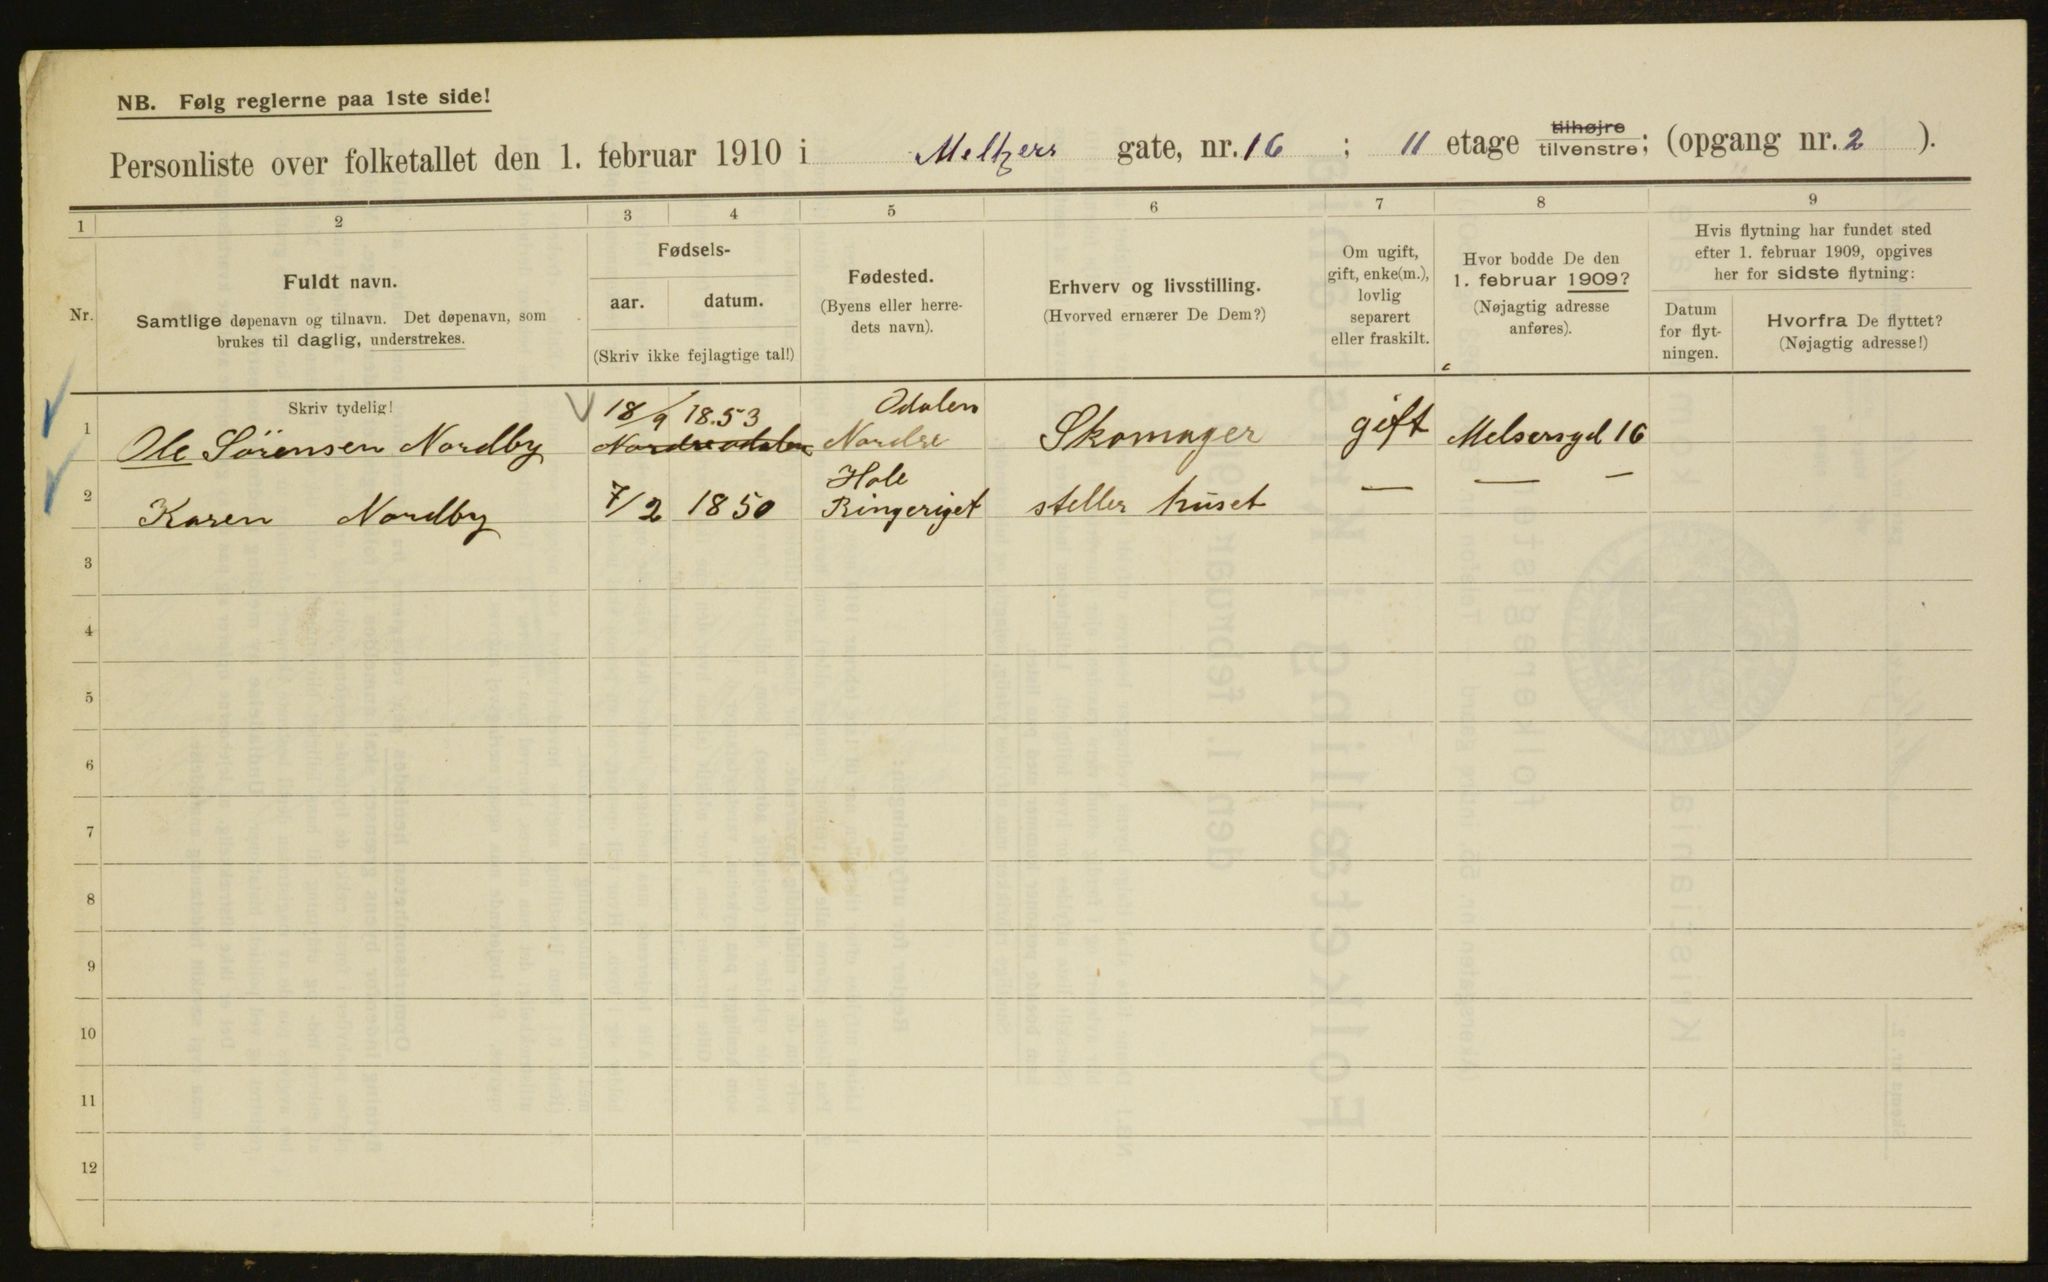 NB. Følg reglerne paa 1ste side!
Personliste over folketallet den 1. februar 1910 i Meltzers gate, nr. 16 ; 11 etage tilhøjre tilvenstre; (opgang nr. 2 ).
1 2 3 4 5 6 7 8 9
Nr.
Fuldt navn.
Samtlige døpenavn og tilnavn. Det døpenavn, som
brukes til daglig, understrekes.
Fødsels-
aar. datum.
(Skriv ikke fejlagtige tal!)
Fødested.
(Byens eller herre-
dets navn).
Erhverv og livsstilling.
(Hvorved ernærer De Dem?)
Om ugift,
gift, enke(m.),
lovlig
separert
eller fraskilt.
Hvor bodde De den
1. februar 1909?
(Nøjagtig adresse
anføres).
Hvis flytning har fundet sted
efter 1. februar 1909, opgives
her for sidste flytning:
Datum
for flyt-
ningen.
Hvorfra De flyttet?
(Nøjagtig adresse!)
Skriv tydelig!
18/9 1853 Odalen
1 Ole Sörensen Nordby Nordreodalen Nordre Skomager gift Melsersgd 16
Hole
2 Karen Nordby 7/2 1850 Ringeriget steller huset — — —
3
4
5
6
7
8
9
10
11
12